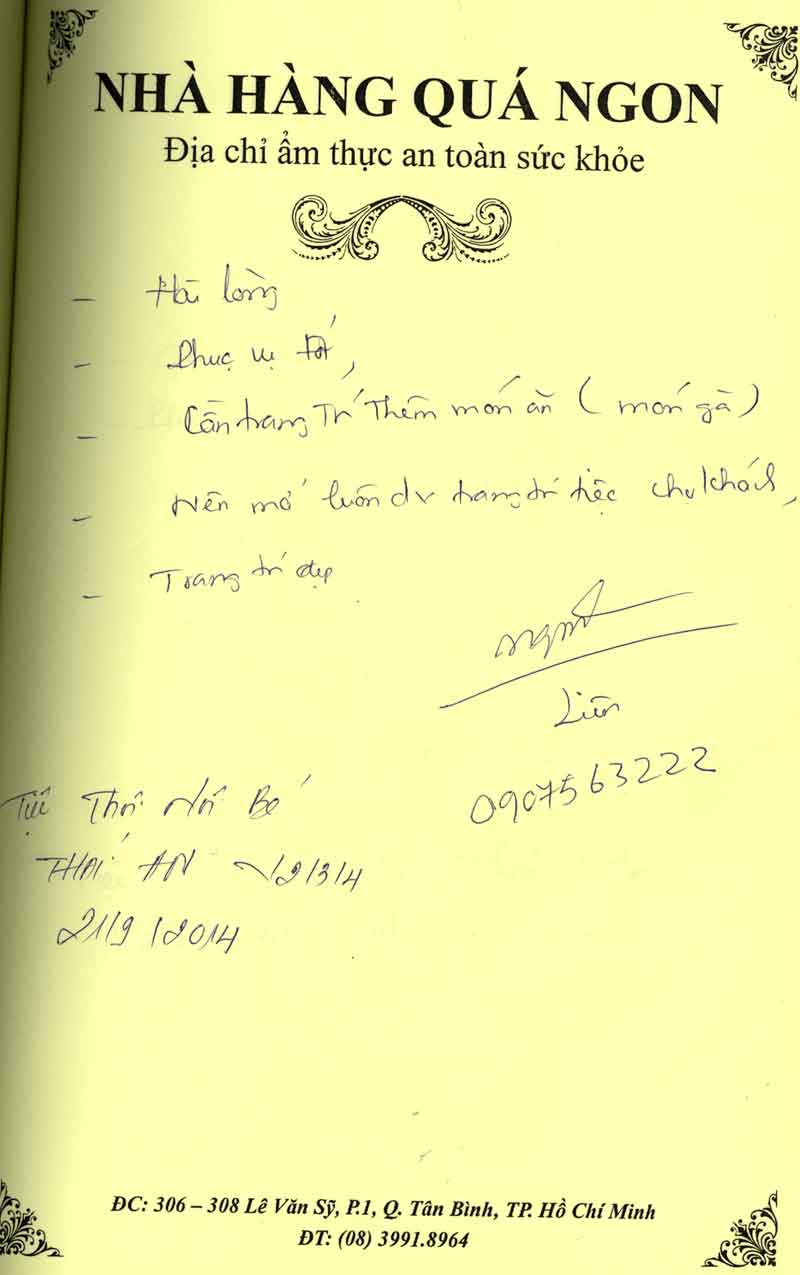 NHÀ HÀNG QUÁ NGON
Địa chỉ ẩm thực an toàn sức khỏe
- Hài lòng
- Phục vụ tốt,
- Cần trang Trí Thêm món ăn ( món gà )
- Nên mở luôn dv trang trí tiệc cho khách,
- Trang trí đẹp
Liên
0907563222
Tiệc Thôi Nôi Bé
21/9/2014
ĐC: 306 – 308 Lê Văn Sỹ, P.1, Q. Tân Bình, TP. Hồ Chí Minh
ĐT: (08) 3991.8964